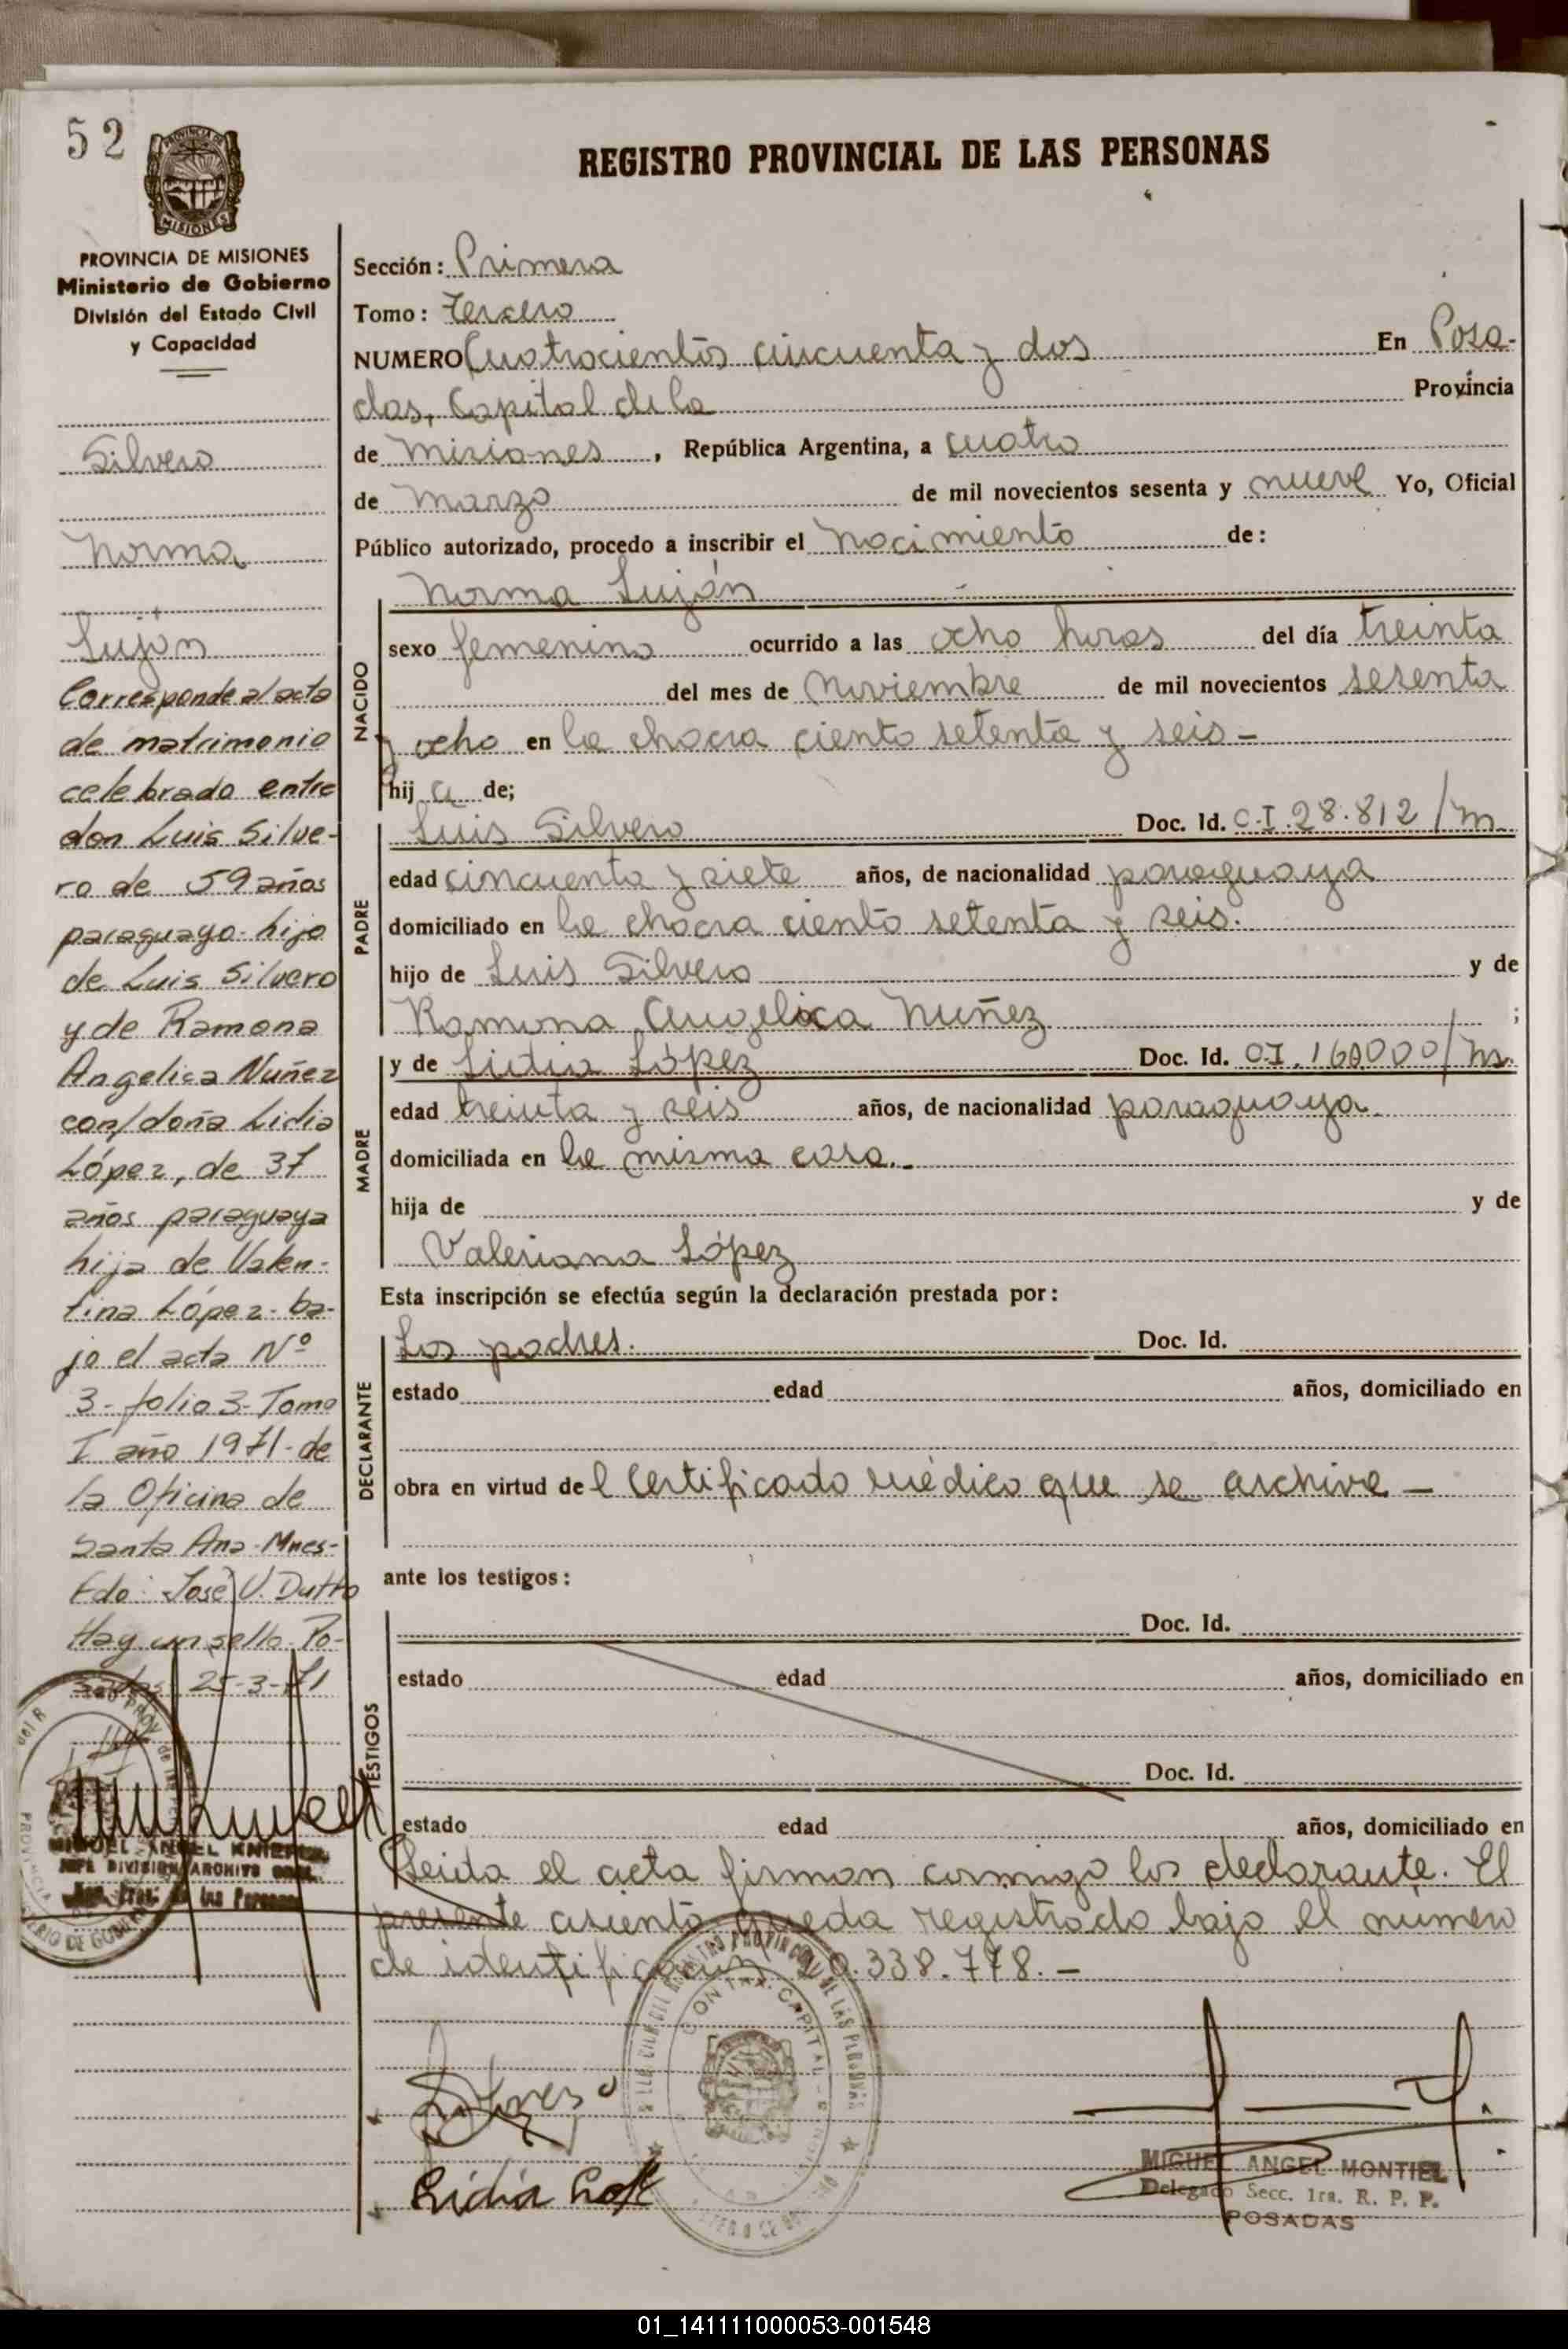 52
PROVINCIA DE
MISIONES
REGISTRO PROVINCIAL DE LAS PERSONAS
PROVINCIA DE MISIONES
Ministerio de Gobierno
División del Estado Civil
y Capacidad
Silvero
Norma
Luján
Corresponde al acta
de matrimonio
celebrado entre
don Luis Silve-
ro de 59 años
paraguayo-hijo
de Luis Silvero
y de Ramona
Angelica Nuñez
con/doña Lidia
López, de 37
años paraguaya
hija de Valen-
tina López-ba-
jo el acta Nº
3-folio 3-Tomo
I año 1971-de
la Oficina de
Santa Ana-Mnes-
Fdo: José V. Dutto
Hay un sello-Po-
sadas 25-3-71
MIGUEL ANGEL
JEFE DIVISION ARCHIVO GRAL.
Reg. Prov. de las Personas
Sección: Primera
Tomo: Tercero
NUMERO Cuatrocientos cincuenta y dos En Posa-
das, Capital de la Provincia
de Misiones, República Argentina, a cuatro
de Marzo de mil novecientos sesenta y nueve Yo, Oficial
Público autorizado, procedo a inscribir el Nacimiento de:
NACIDO
Norma Luján
sexo femenino ocurrido a las ocho horas del día treinta
del mes de Noviembre de mil novecientos sesenta
y ocho en la chacra ciento setenta y seis-
hija de;
PADRE
Luis Silvero Doc. Id. C.I.28.812/M
edad cincuenta y siete años, de nacionalidad paraguaya
domiciliado en la chacra ciento setenta y seis.
hijo de Luis Silvero y de
Ramona Angelica Nuñez ;
MADRE
y de Lidia López Doc. Id. C.I.160000/M.
edad treinta y seis años, de nacionalidad paraguaya.
domiciliada en la misma casa.-
hija de y de
Valeriana López
Esta inscripción se efectúa según la declaración prestada por:
DECLARANTE
Los padres. Doc. Id.
estado edad años, domiciliado en
obra en virtud del Certificado médico que se archiva-
ante los testigos:
TESTIGOS
Doc. Id.
estado edad años, domiciliado en
Doc. Id.
estado edad años, domiciliado en
Leida el acta firman conmigo los declarante. El
presente asiento queda registrado bajo el número
de identificación 20.338.778.-
Silvero
Lidia Lope
MIGUEL ANGEL MONTIEL
Delegado Secc. 1ra. R. P. P.
POSADAS
01_141111000053-001548